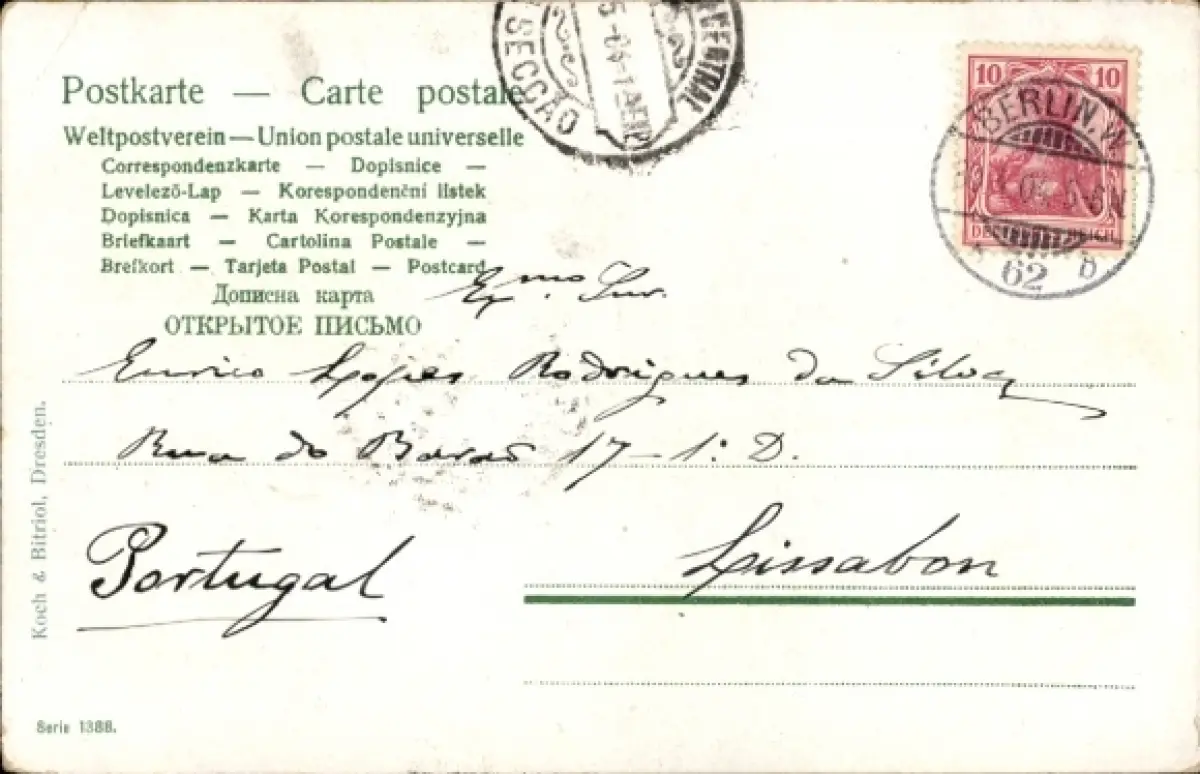 SECÇÃO CENTRAL
10 10
BERLIN, W.
62 b
Postkarte — Carte postale
Weltpostverein — Union postale universelle
Correspondenzkarte — Dopisnice —
Levelező-Lap — Korespondenční listek
Dopisnica — Karta Korespondenzyjna
Briefkaart — Cartolina Postale —
Brefkort — Tarjeta Postal — Postcard
Дописна карта
ОТКРЫТОЕ ПИСЬМО
Exmo. Snr.
Enrico Lopes Rodrigues da Silva
Rua do Barão 17 – 1º D.
Portugal
Lissabon
Koch & Bitriol, Dresden.
Serie 1388.